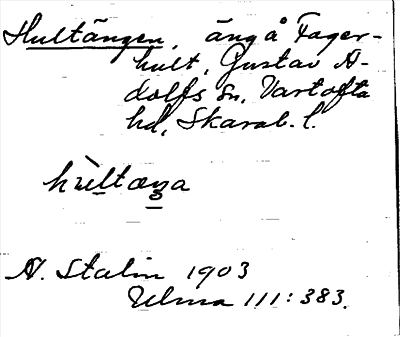 Hultängen, äng å Fager-
hult, Gustav A-
dolfs sn, Vartofta
hd, Skarab. l.
hùltæŋa
A. Stalin 1903
Ulma 111: 383.